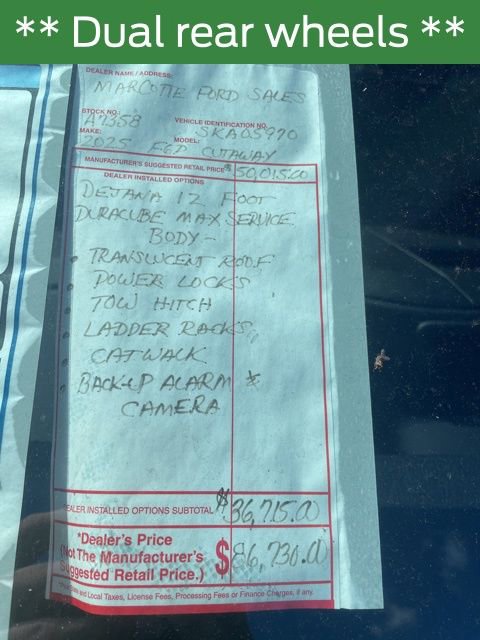 ** Dual rear wheels **
DEALER NAME/ADDRESS:
MARCOTTE FORD SALES
STOCK NO.:
A7358
VEHICLE IDENTIFICATION NO.
SKA05970
MAKE:
MODEL:
2025 CUTAWAY
MANUFACTURER'S SUGGESTED RETAIL PRICE $ 50,015.00
DEALER INSTALLED OPTIONS
DEJANA 12 FOOT
DURACUBE MAX SERVICE
BODY -
• TRANSLUCENT ROOF
• POWER LOCKS
• TOW HITCH
• LADDER RACKS
• CATWALK
• BACK-UP ALARM &
CAMERA
DEALER INSTALLED OPTIONS SUBTOTAL $36,715.00
*Dealer's Price
(Not The Manufacturer's
Suggested Retail Price.) $86,730.00
State and Local Taxes, License Fees, Processing Fees or Finance Charges, if any.